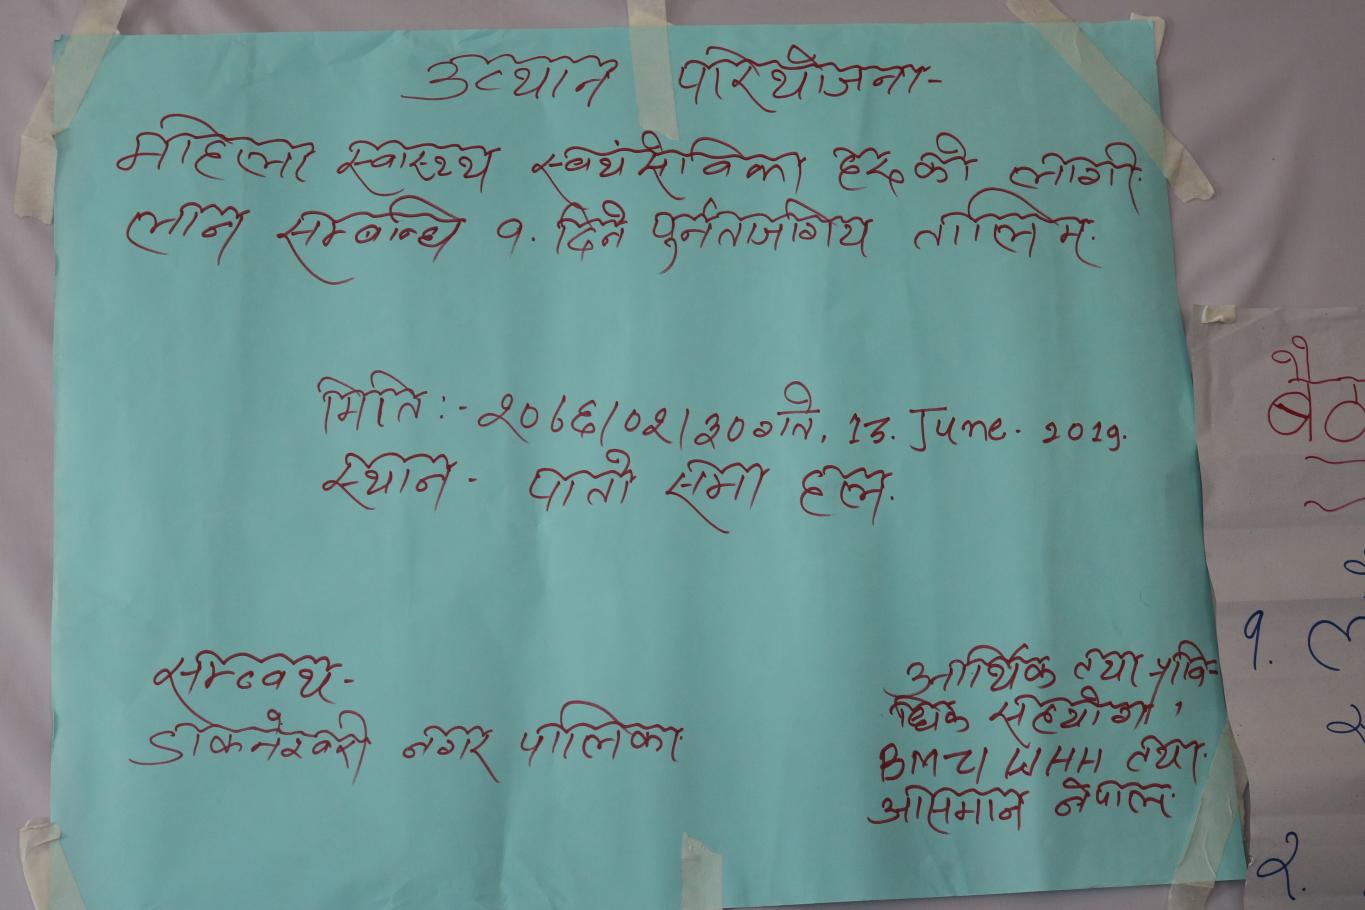 उत्थान परियोजना-
महिला स्वास्थ्य स्वयंसेविका हरुको लागी
लान सम्बन्धि १. दिने पुर्नताजगिय तालिम.
मिति :- २०७६/०२/३० गते, 13. June. 2019.
स्थान - पातो सभा हल.
समन्वय -
डाकनेश्वरी नगर पालिका
आर्थिक तथा प्रावि-
धिक सहयोग,
BMZ/ WHH तथा
आसमान नेपाल.
१.
२.